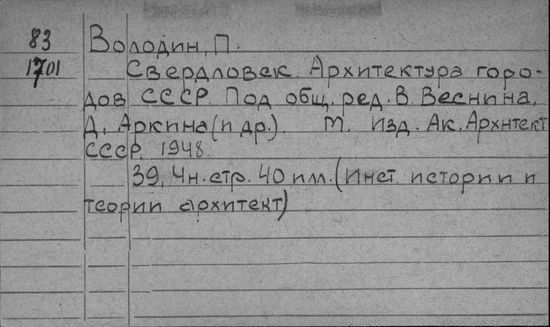 83 Володин, П.
1701 Свердловск. Архитектура горо-
дов СССР. Под общ. ред. В. Веснина,
Д. Аркина (и др.). М. Изд. Ак. Архитект
СССР. 1948.
39, 4н. стр. 40 илл. (Инст. истории и
теории архитект)